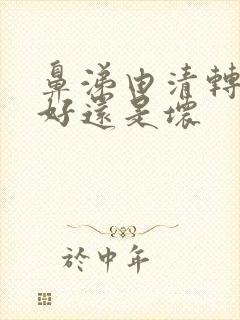 鼻涕由清轉
好還是壞
於中年